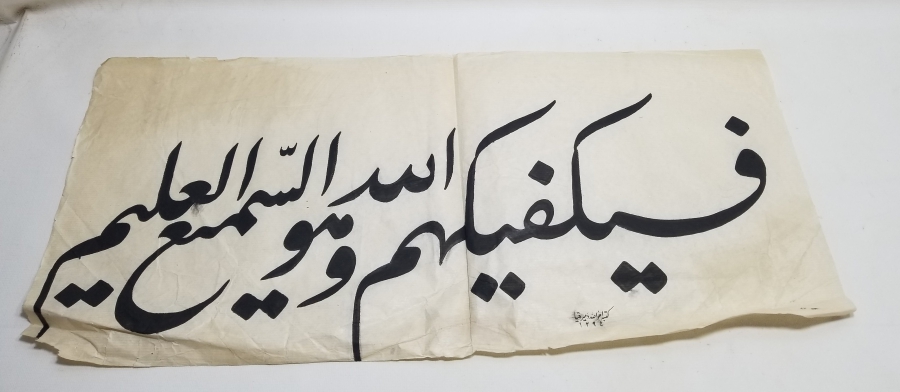 فسيكفيكهم الله وهو السّميع العليم
١٢٩٤